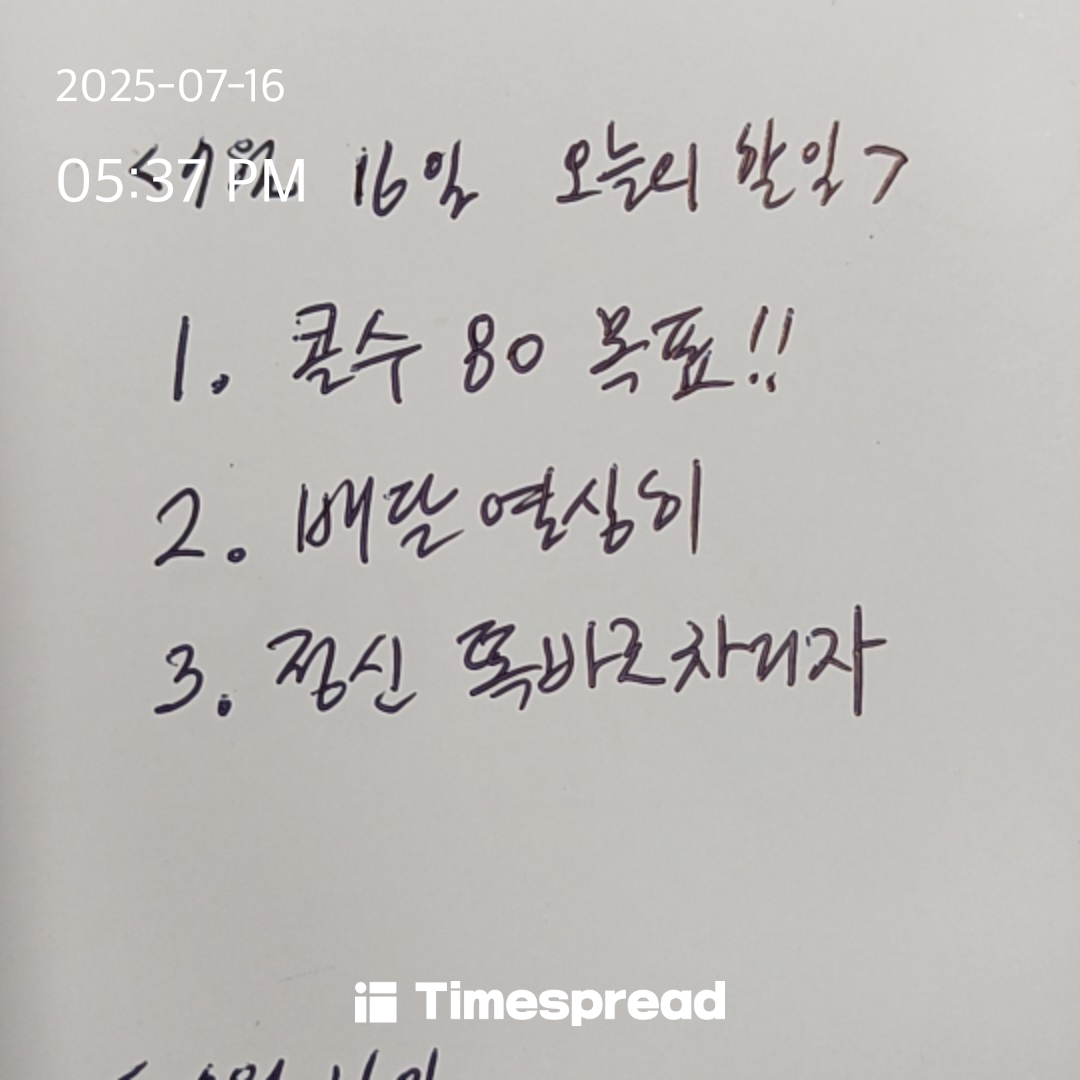 2025-07-16
05:37 PM
<7월 16일 오늘의 할일>
1. 콜수 80 목표!!
2. 배달 열심히
3. 정신 똑바로차리자
Timespread